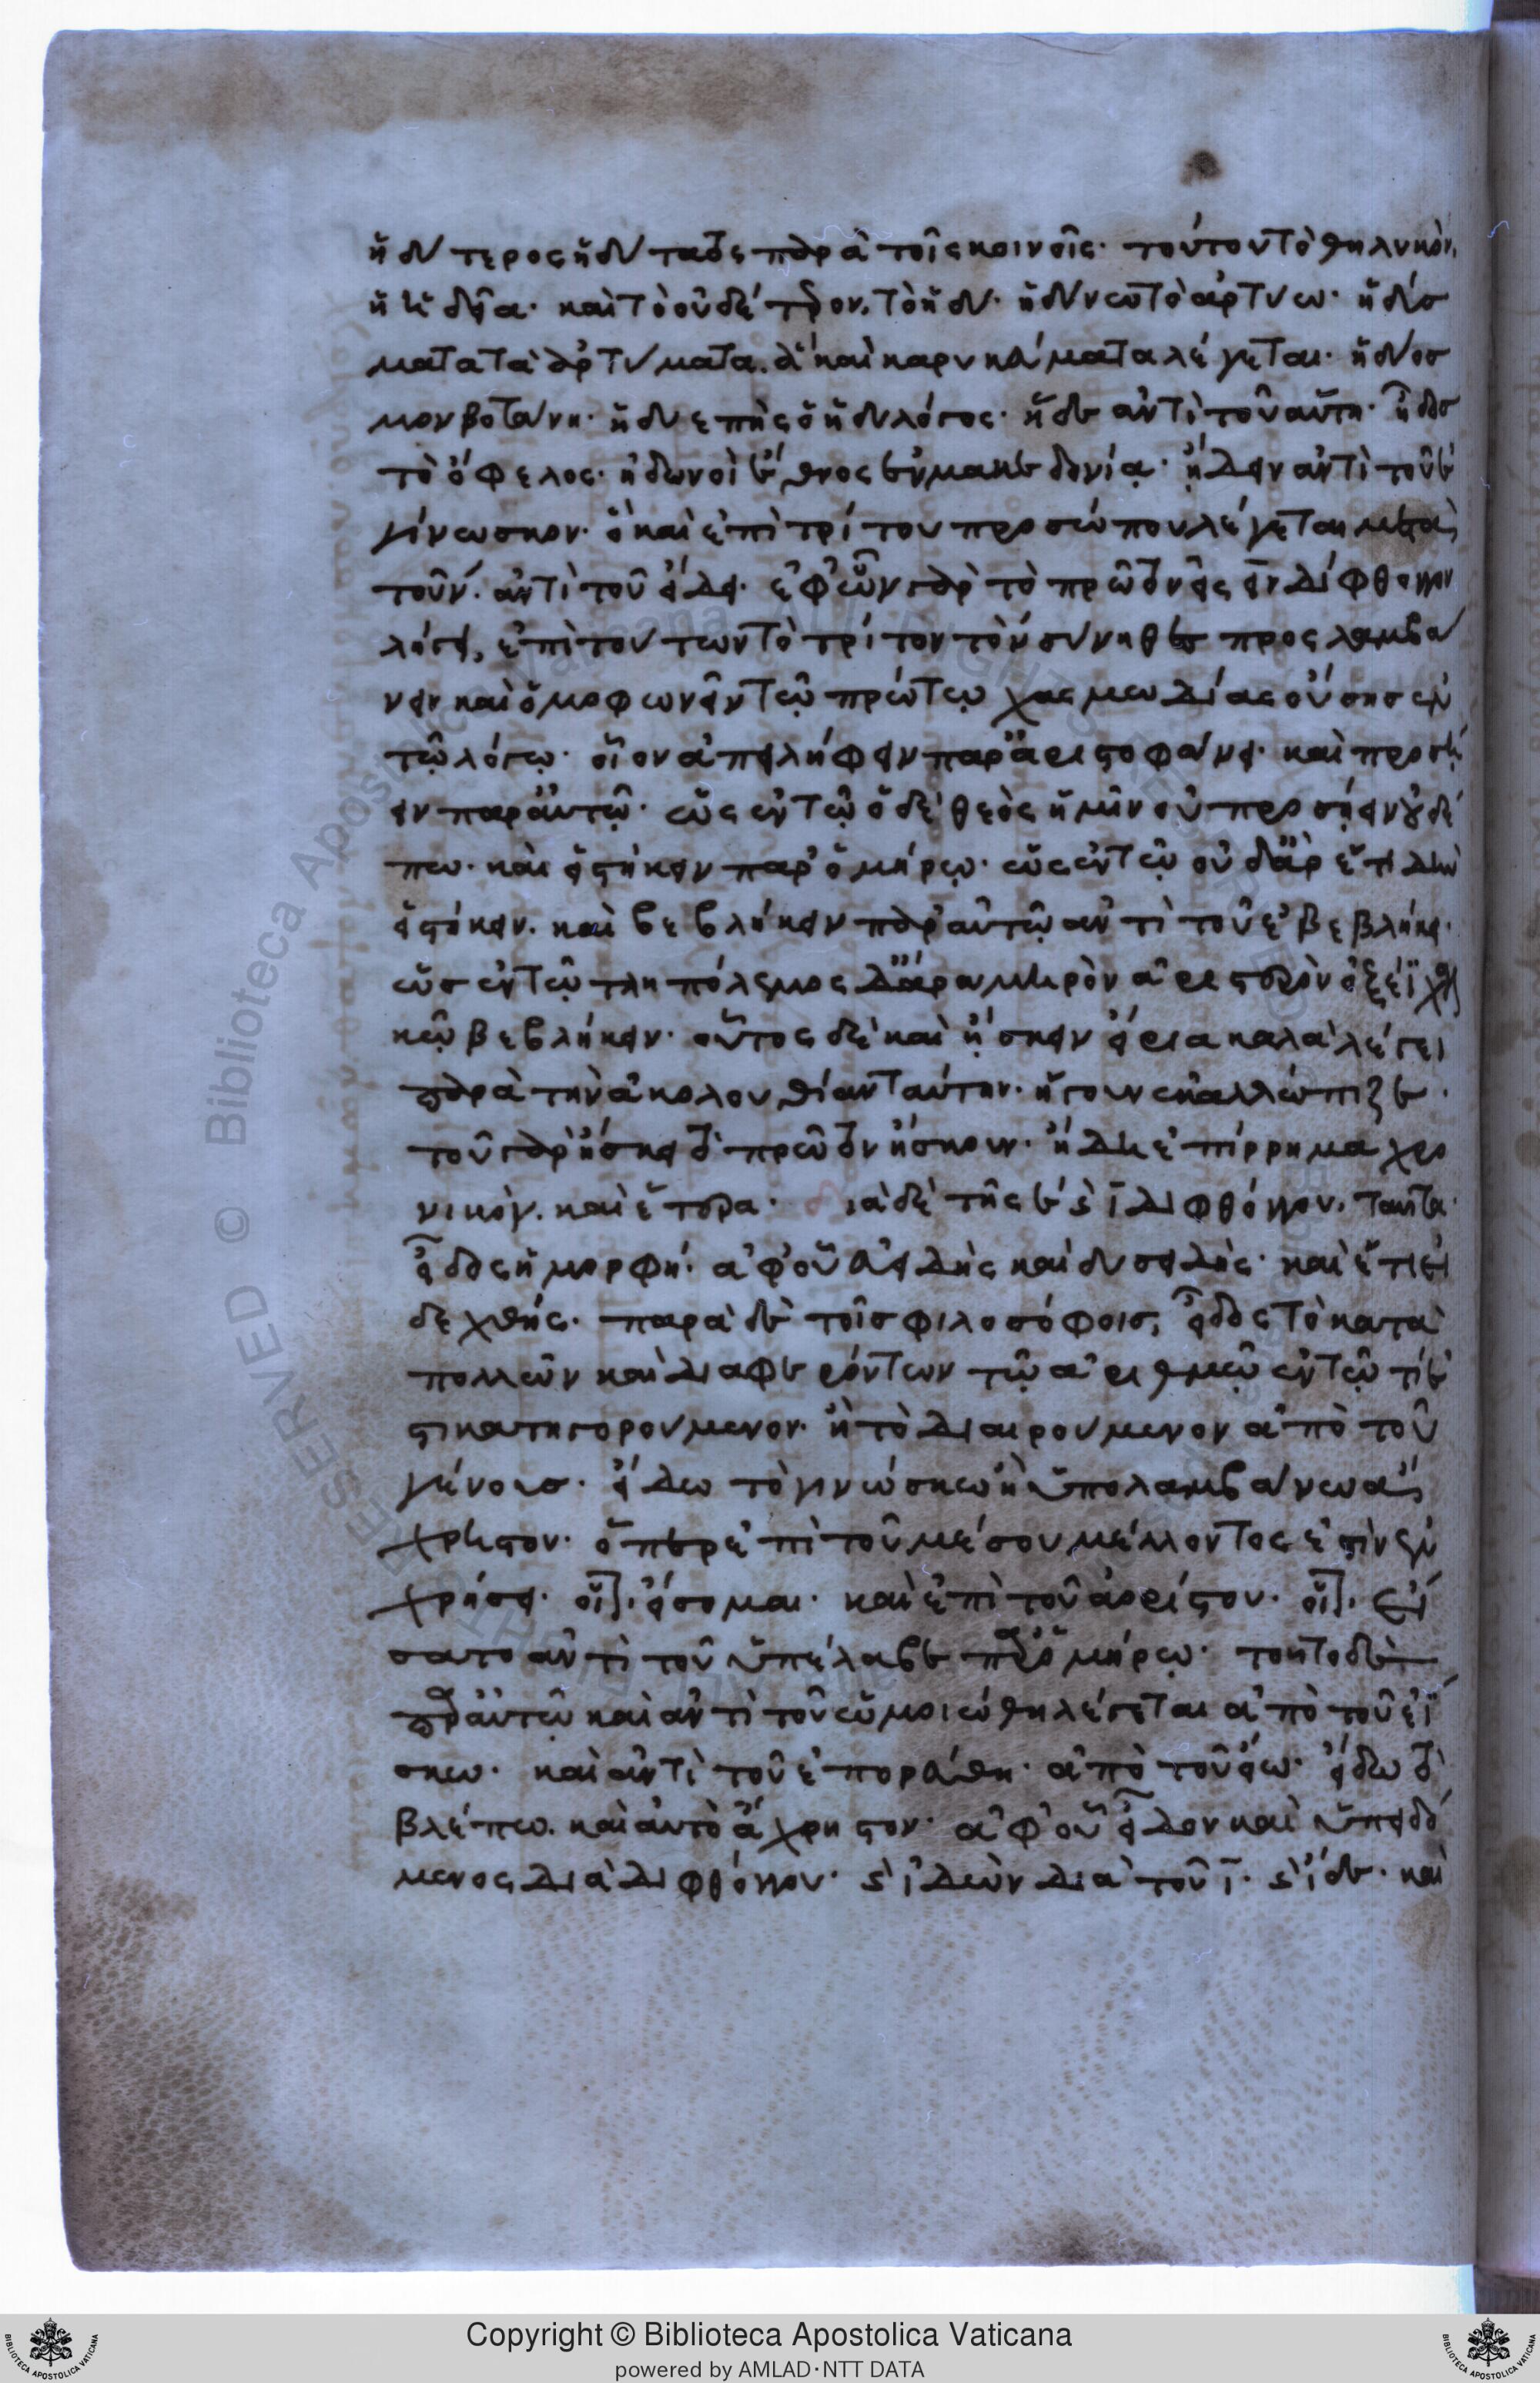 ἡδύτερος ἡδύτατος παρὰ τοῖς κοινοῖς· τούτου τὸ θηλυκὸν,
ἡ ἡδεῖα· καὶ τὸ οὐδέτερον, τὸ ἡδύ· ἡδύνω τὸ ἀρτύνω· ἡδύσ
ματα τὰ ἀρτύματα. ἃ καὶ καρυκεύματα λέγεται· ἡδύοσ
μον βοτάνη· ἡδυεπὴς ὁ ἡδυλόγος· ἥδε ἀντὶ τοῦ αὕτη· ἦδοσ
τὸ ὄφελος· ἠδωνοὶ ἔθνος ἐν μακεδονίᾳ· ᾔδειν ἀντὶ τοῦ ἐ
γίνωσκον· ὃ καὶ ἐπὶ τρίτου προσώπου λέγεται μετὰ
τοῦ ν· ἀντὶ τοῦ ᾔδει· ἐφ' ὧν γὰρ τὸ πρῶτον εἰς ειν δίφθογγον
λήγει, ἐπὶ τούτων τὸ τρίτον τὸ ν σύνηθες προσλαμβά
νειν καὶ ὁμοφωνεῖν τῷ πρώτῳ χασμωδίας οὔσης ἐν
τῷ λόγῳ· οἷον ἀπειλήφειν παρ' ἀριστοφάνει· καὶ προσῄ
ειν παρ' αὐτῷ· ὡς ἐν τῷ ὁ δὲ θεὸς ἡμῖν οὐ προσῄειν οὐδέ
πω· καὶ εἱστήκειν παρ' ὁμήρῳ· ὡς ἐν τῷ οὐδ' ἄρ ἔτι δὴν
εἱστήκειν· καὶ βεβλήκειν παρ' αὐτῷ ἀντὶ τοῦ ἐβεβλήκει·
ὡς ἐν τῷ τληπόλεμος δ' ἄρα μηρὸν ἀριστερὸν ἔγχεϊ χαλ
κῷ βεβλήκειν· οὗτος δὲ καὶ ἤσκειν εἴρια καλὰ λέγει
παρὰ τὴν ἀκολουθίαν ταύτην· ἤγουν ἐκαλλώπιζε·
τοῦ γὰρ ἤσκει τὸ πρῶτον ἤσκουν· ἤδη ἐπίρρημα χρο
νικόν. καὶ ἕτερα· διὰ δὲ τῆς ε καὶ ι διφθόγγου, ταῦτα·
εἶδος ἡ μορφή· ἀφ' οὗ εὐειδὴς καὶ δυσειδής· καὶ ἔτι εἰ
δεχθής· παρὰ δὲ τοῖς φιλοσόφοις, εἶδος τὸ κατὰ
πολλῶν καὶ διαφερόντων τῷ ἀριθμῷ ἐν τῷ τί ἐ
στι κατηγορούμενον· ἢ τὸ διαιρούμενον ἀπὸ τοῦ
γένους· εἴδω τὸ γινώσκω ἢ ὑπολαμβάνω ἄ
χρηστον· ὅπερ ἐπὶ τοῦ μέσου μέλλοντος ἐστὶν ἐν
χρήσει· οἷον εἴσομαι· καὶ ἐπὶ τοῦ ἀορίστου· οἷον εἴ
σατο ἀντὶ τοῦ ὑπέλαβε παρ' ὁμήρῳ· τοῦτο δὲ
παρ' αὐτῷ καὶ ἀντὶ τοῦ ὡμοιώθη λέγεται ἀπὸ τοῦ ἐΐ
σκω· καὶ ἀντὶ τοῦ ἐπορεύθη· ἀπὸ τοῦ εἴω· εἴδω τὸ
βλέπω. καὶ αὐτὸ ἄχρηστον· ἀφ' οὗ εἶδον καὶ ὑπειδό
μενος διὰ διφθόγγου· καὶ ἰδὼν διὰ τοῦ ι· καὶ ἴδε· καὶ
Copyright © Biblioteca Apostolica Vaticana
powered by AMLAD·NTT DATA